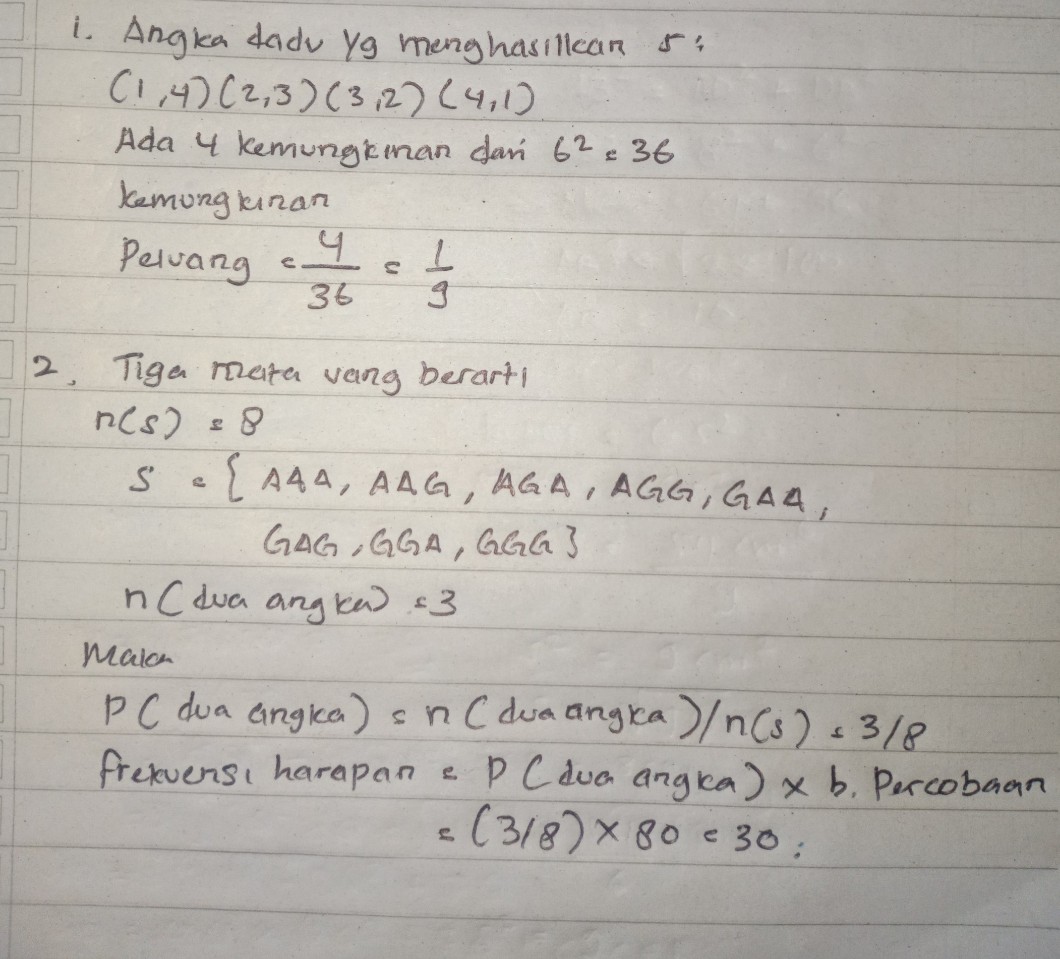 1. Angka dadu yg menghasilkan 5 :
(1,4) (2,3) (3,2) (4,1)
Ada 4 kemungkinan dari 6² = 36
kemungkinan
Peluang = 4/36 = 1/9
2. Tiga mata uang berarti
n(s) = 8
S = { AAA, AAG, AGA, AGG, GAA,
GAG, GGA, GGG }
n (dua angka) = 3
Maka
P ( dua angka ) = n ( dua angka ) / n(s) = 3/8
frekuensi harapan = P ( dua angka ) x b. Percobaan
= (3/8) x 80 = 30 ;